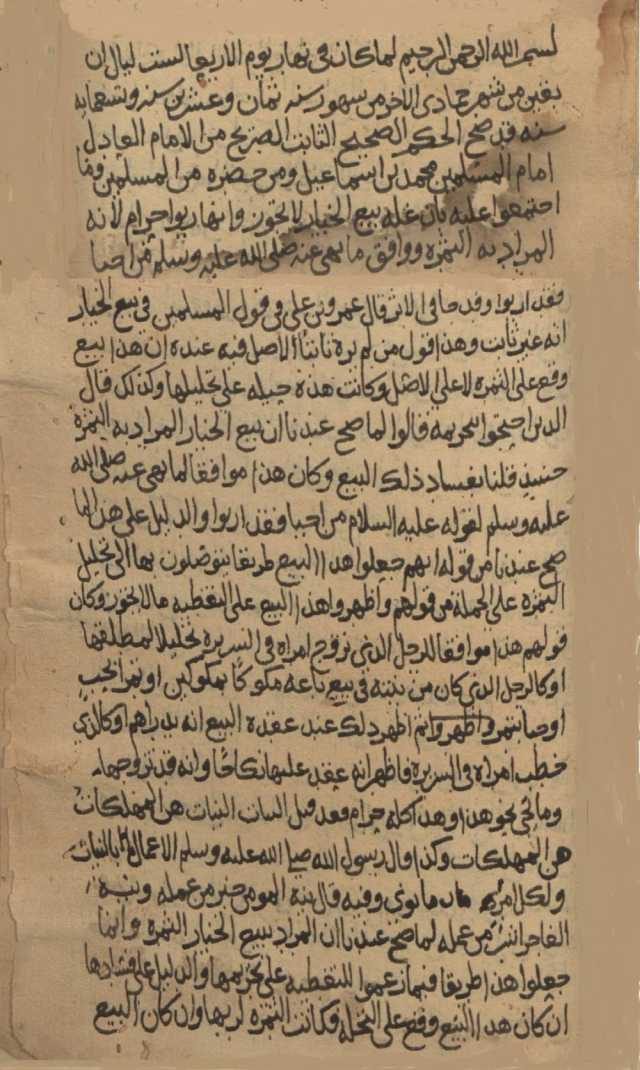 لسم الله الرحمن الرحيم لما كان في نهار يوم الاربعا لست ليال ان
بقين من شهر جمادى الاخر من شهور سنه ثمان وعشرين سنه وتسعمايه
سنه قد صح الحكم الصحيح الثابت الصريح من الامام العادل
امام المسلمين محمد بن اسماعيل ومن حضره من المسلمين وما
اجتمعوا عليه بان غله بيع الخيار لا تجوز وانها ربوا حرام لانه
المراد به الثمره ووافق ما نهى عنه صلى الله عليه وسلم من اجبا
فقد اربوا وقد جا في الاثر قال عمرو بن علي في قول المسلمين في بيع الخيار
انه غير ثابت وهذا قول من لم يره ثابتا الاصل فيه عنده ان هذا بيع
وقع على الثمره لا على الاصل وكانت هذه حيله على تحليلها وكذلك قال
الدين احتجوا بتحريمه قالوا لما صح عندنا ان بيع الخيار المراد به الثمرة
حنيىذ قلنا بفساد ذلك البيع وكان هذا موافقا لما نهى عنه صلى الله
عليه وسلم لقوله عليه السلام من اجبا فقد اربوا والدليل على هذا لما
صح عندنا من قوله انهم جعلوا هذا البيع طريقا يتوصلون بها الى تحليل
الثمره على الجملة من قولهم واظهروا هذا البيع على التغطيه ما لا يجوز وكان
قولهم هذا موافقا للرجل الذي تزوج امراه في السريرة تحليلا لمطلقها
او كالرجل الذي كان من نيته في بيع باعه مكوكا بمكوكين او تمرا بحب
او حبا بتمر واظهر ذلك عند عقدة البيع انه بدراهم او كالذي
خطب امراه في السريرة فاظهر انه عقد عليها نكاحا وانه قد تزوجها
وما يجي نحو هذا وهذا كله حرام فقد قيل النيات النيات هن المهلكات
هن المهلكات وكذا قال رسول الله صلى الله عليه وسلم الاعمال بالنيات
ولكل امرىء ما نوى وفيه قال نية المومن خير من عمله ونيه
الفاجر اشر من عمله لما صح عندنا ان المراد ببيع الخيار الثمره وانما
جعلوا هذا طريقا فيما زعموا للتغطيه على تحريمها والدليل على فسادها
ان كان هذا البيع وقع على النخله وكانت الثمره لربها وان كان البيع